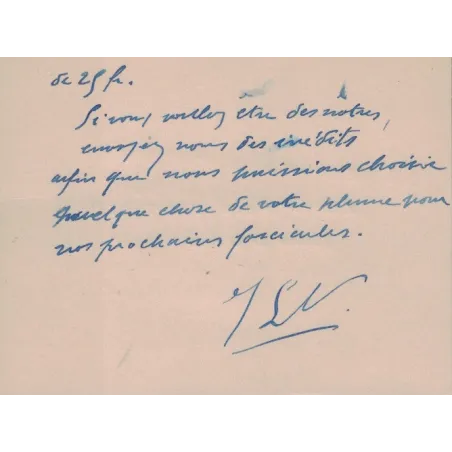 de 25 fr.
Si vous voulez etre des nôtres,
envoyez nous des inédits
afin que nous puissions choisir
quelque chose de votre plume pour
nos prochains fascicules.